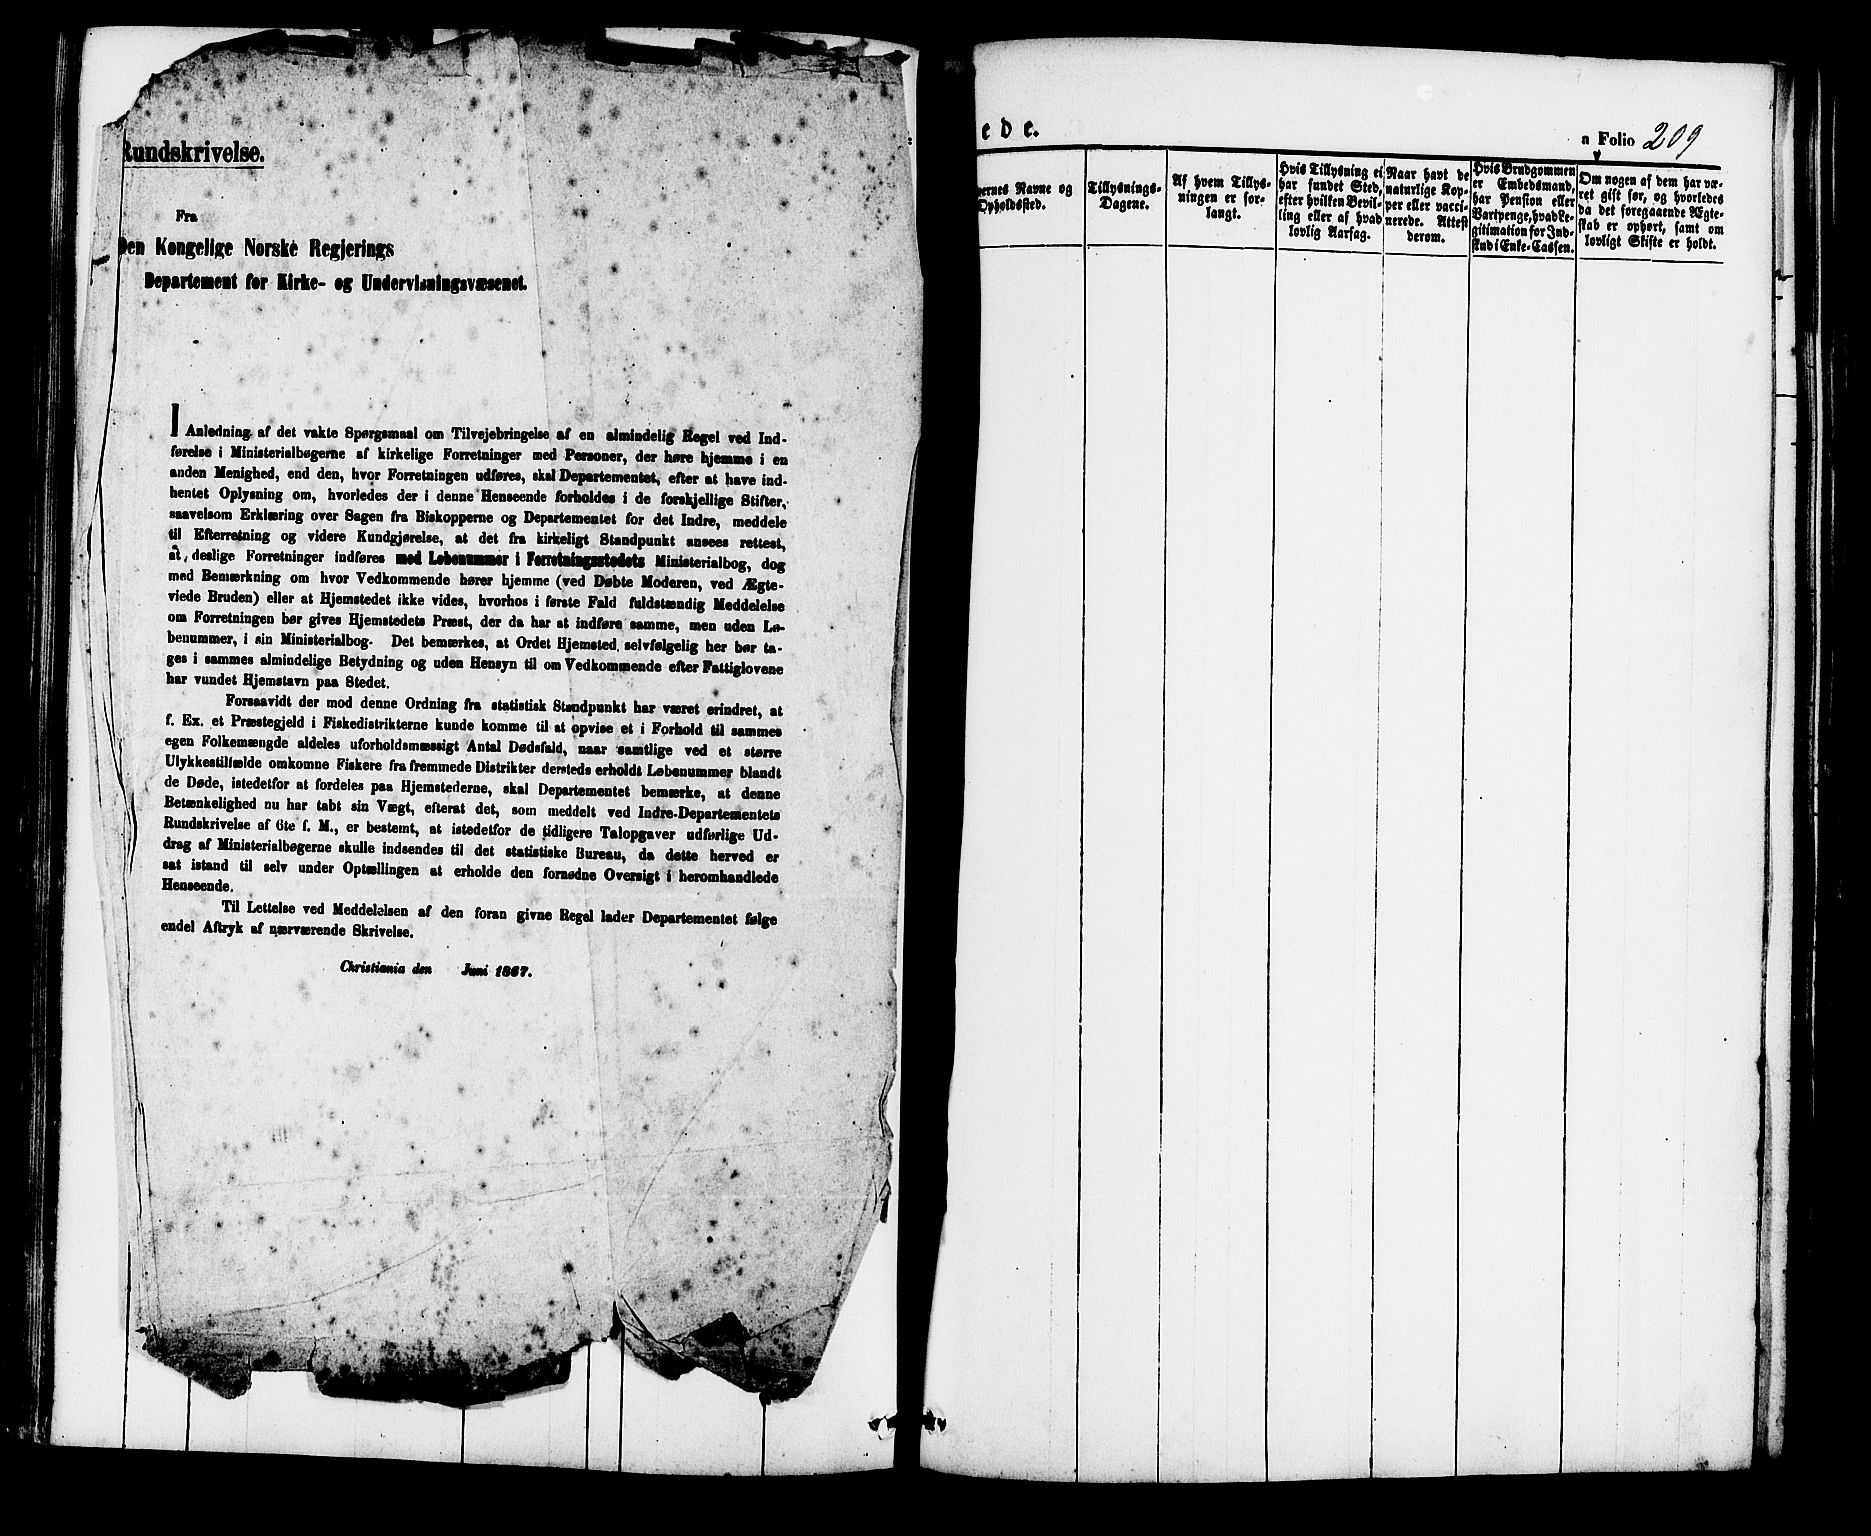 Rundskrivelse.
Fra
Den Kongelige Norske Regjerings
Departement for Kirke- og Undervisningsvæsenet.
I Anledning af det vakte Spørgsmaal om Tilvejebringelse af en almindelig Regel ved Ind-
førelse i Ministerialbøgerne af kirkelige Forretninger med Personer, der høre hjemme i en
anden Menighed, end den, hvor Forretningen udføres, skal Departementet, efter at have ind-
hentet Oplysning om, hvorledes der i denne Henseende forholdes i de forskjellige Stifter,
saavelsom Erklæring over Sagen fra Biskopperne og Departementet for det Indre, meddele
til Efterretning og videre Kundgjørelse, at det fra kirkeligt Standpunkt ansees rettest,
at deslige Forretninger indføres med Løbenummer i Forretningsstedets Ministerialbog, dog
med Bemærkning om hvor Vedkommende hører hjemme (ved Døbte Moderen, ved Ægte-
viede Bruden) eller at Hjemstedet ikke vides, hvorhos i første Fald fuldstændig Meddelelse
om Forretningen bør gives Hjemstedets Præst, der da har at indføre samme, men uden Lø-
benummer, i sin Ministerialbog. Det bemærkes, at Ordet Hjemsted selvfølgelig her bør ta-
ges i sammes almindelige Betydning og uden Hensyn til om Vedkommende efter Fattiglovene
har vundet Hjemstavn paa Stedet.
Forsaavidt der mod denne Ordning fra statistisk Standpunkt har været erindret, at
f. Ex. et Præstegjeld i Fiskedistrikterne kunde komme til at opvise et i Forhold til sammes
egen Folkemængde aldeles uforholdsmæssigt Antal Dødsfald, naar samtlige ved et større
Ulykkestilfælde omkomne Fiskere fra fremmede Distrikter dersteds erholdt Løbenummer blandt
de Døde, istedetfor at fordeles paa Hjemstederne, skal Departementet bemærke, at denne
Betænkelighed nu har tabt sin Vægt, efterat det, som meddelt ved Indre-Departementets
Rundskrivelse af 6te f. M., er bestemt, at istedetfor de tidligere Talopgaver udførlige Ud-
drag af Ministerialbøgerne skulle indsendes til det statistiske Bureau, da dette herved er
sat istand til selv under Optællingen at erholde den fornødne Oversigt i heromhandlede
Henseende.
Til Lettelse ved Meddelelsen af den foran givne Regel lader Departementet følge
endel Aftryk af nærværende Skrivelse.
Christiania den Juni 1867.
ede.
a Folio 209
ernes Navne og
Opholdssted.
Tillysnings-
Dagene.
Af hvem Tillys-
ningen er for-
langt.
Hvis Tillysning ei
har fundet Sted,
efter hvilken Bevil-
ling eller af hvad
lovlig Aarsag.
Naar havt de
naturlige Kop-
per eller vacci-
nerede. Attest
derom.
Hvis Brudgommen
er Embedsmand,
har Pension eller
Vartpenge, hvad Le-
gitimation for Ind-
skud i Enke-Cassen.
Om nogen af dem har væ-
ret gift før, og hvorledes
da det foregaaende Ægte-
skab er ophørt, samt om
lovligt Skifte er holdt.